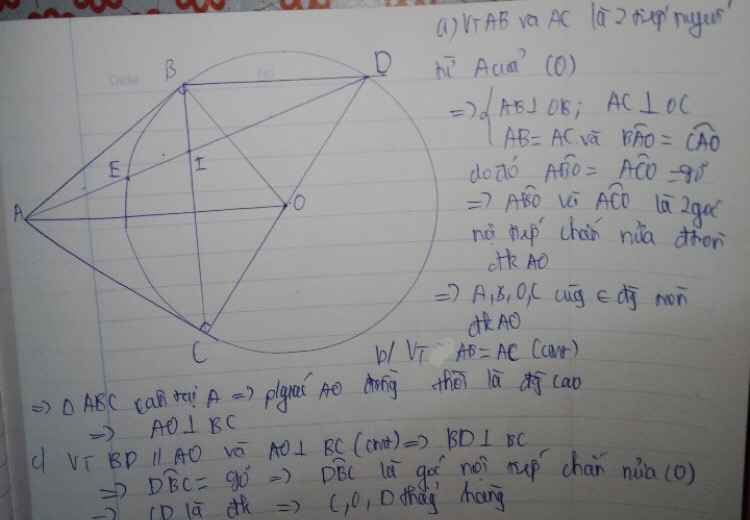 a) VT AB và AC là 2 tiếp tuyến
từ A của (O)
=> AB ⊥ OB; AC ⊥ OC
AB = AC và BÂO = CÂO
do đó AB̂O = AĈO = 90°
=> AB̂O và AĈO là 2 góc
nội tiếp chắn nửa đtròn
đk AO
=> A, B, O, C cùng ∈ đg tròn
đk AO
b/ VT AB = AC (cmt)
=> Δ ABC cân tại A => p/giác AO đồng thời là đg cao
=> AO ⊥ BC
c/ VT BD // AO và AO ⊥ BC (cmt) => BD ⊥ BC
=> DB̂C = 90° => DB̂C là góc nội tiếp chắn nửa (O)
=> CD là đk => C, O, D thẳng hàng
B
D
E
I
A
O
C